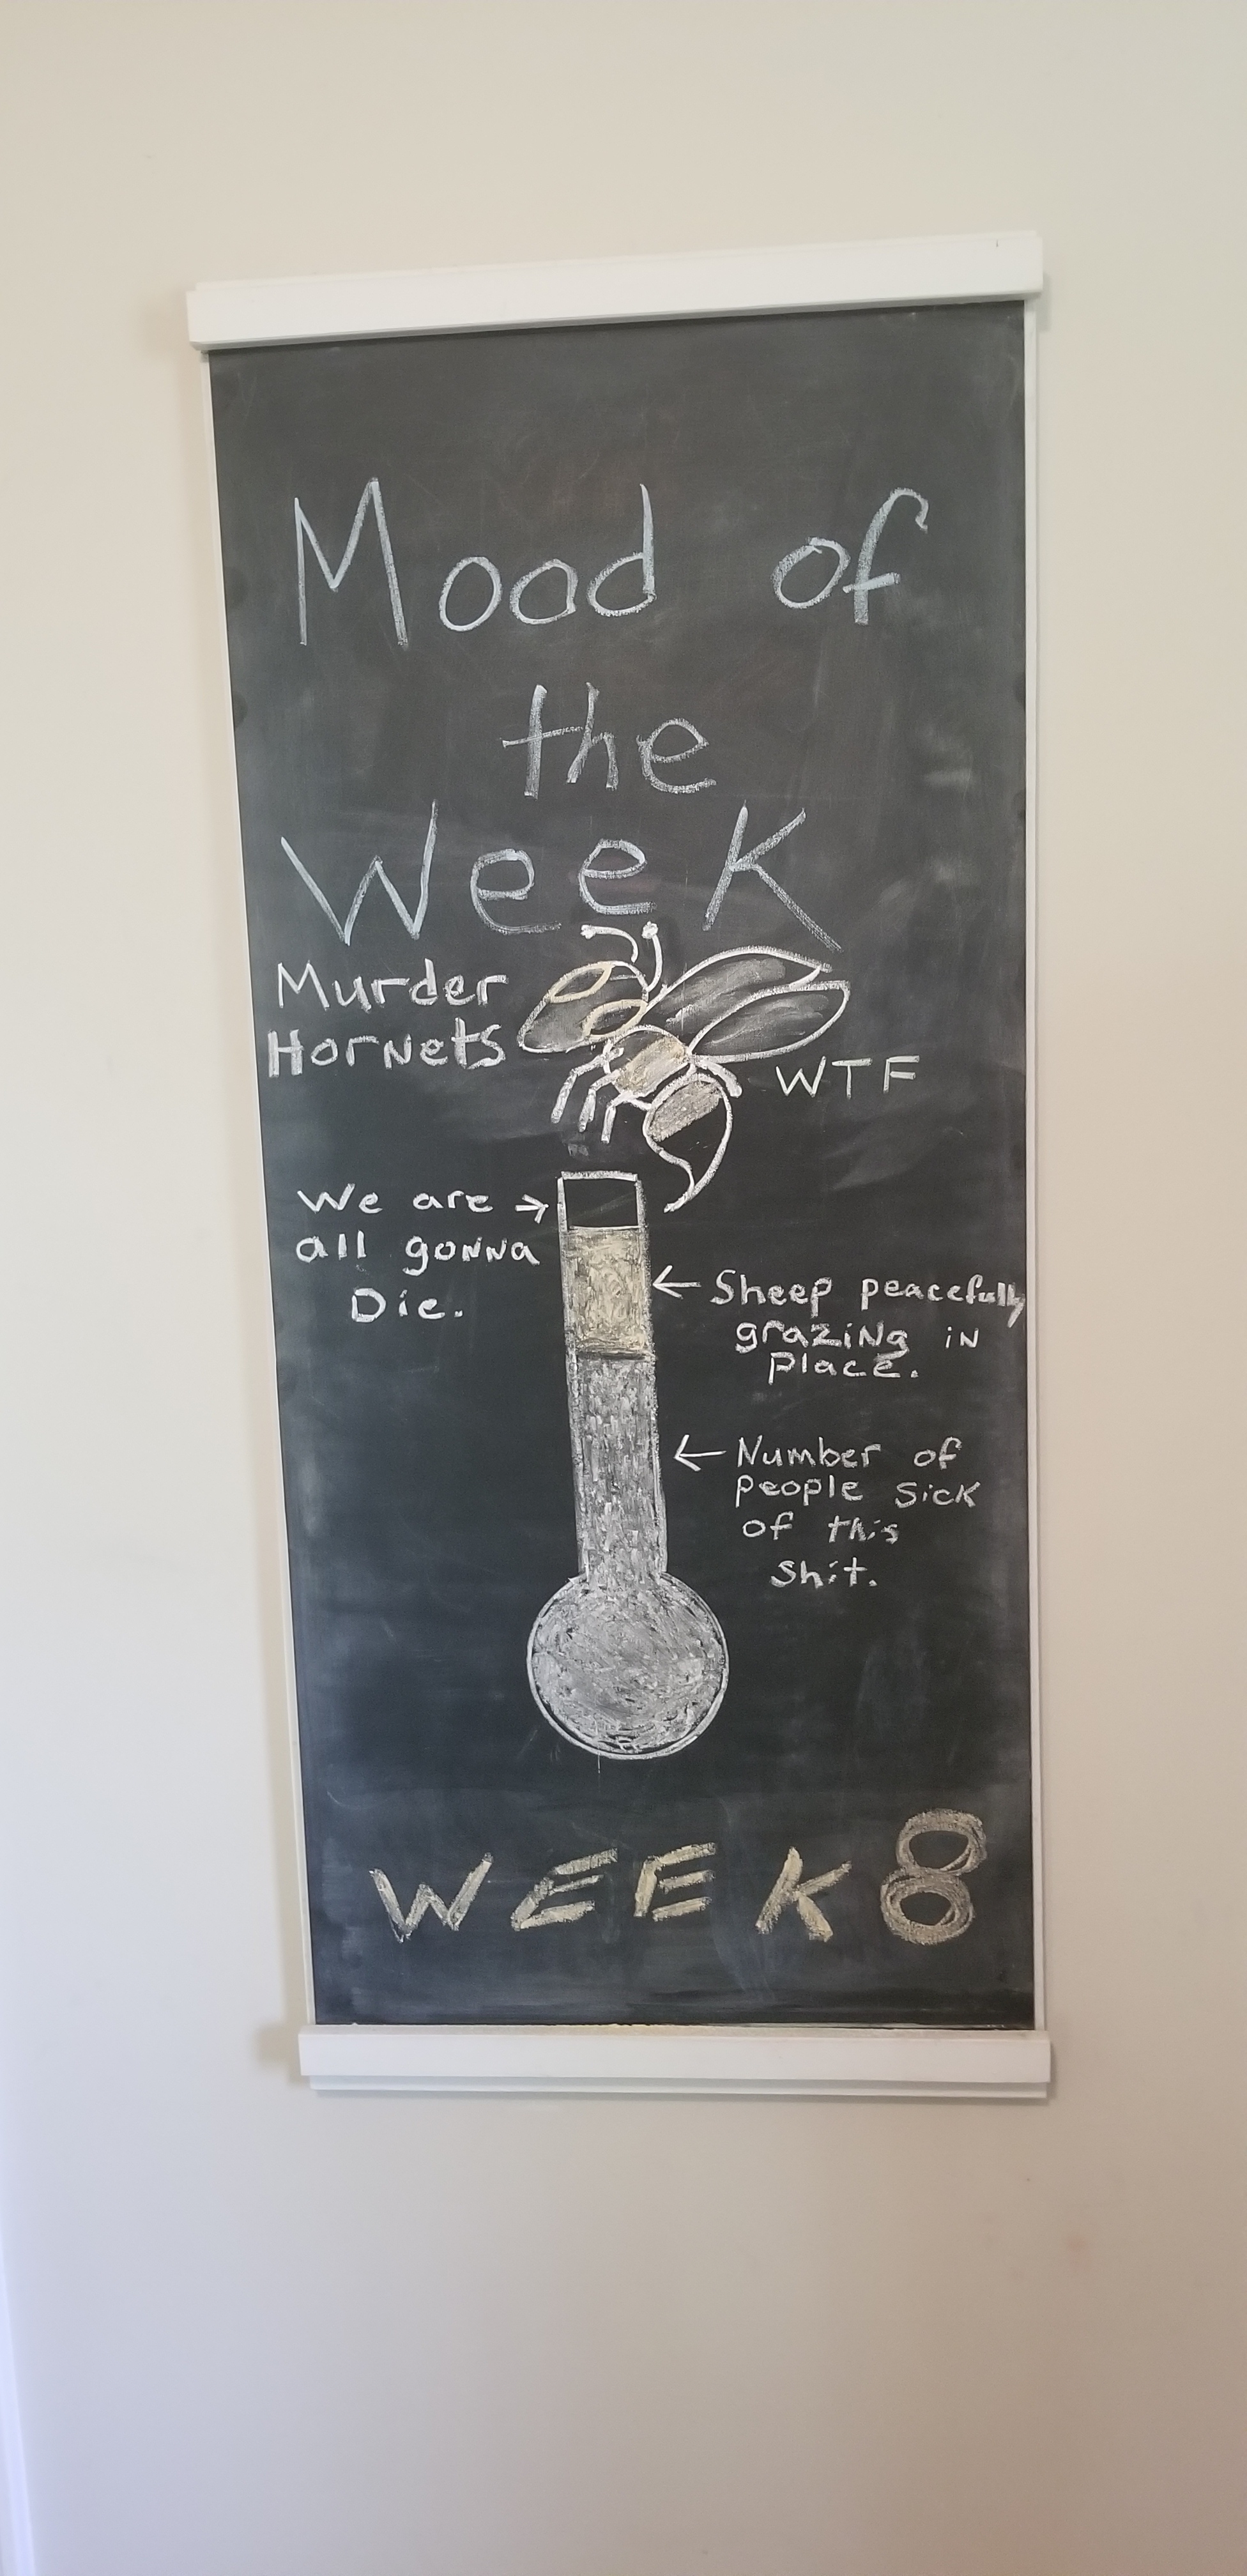 Mood of
the
Week
Murder
Hornets
WTF
We are
all gonna
Die.
Sheep peacefully
grazing in
place.
Number of
people sick
of this
shit.
WEEK 8